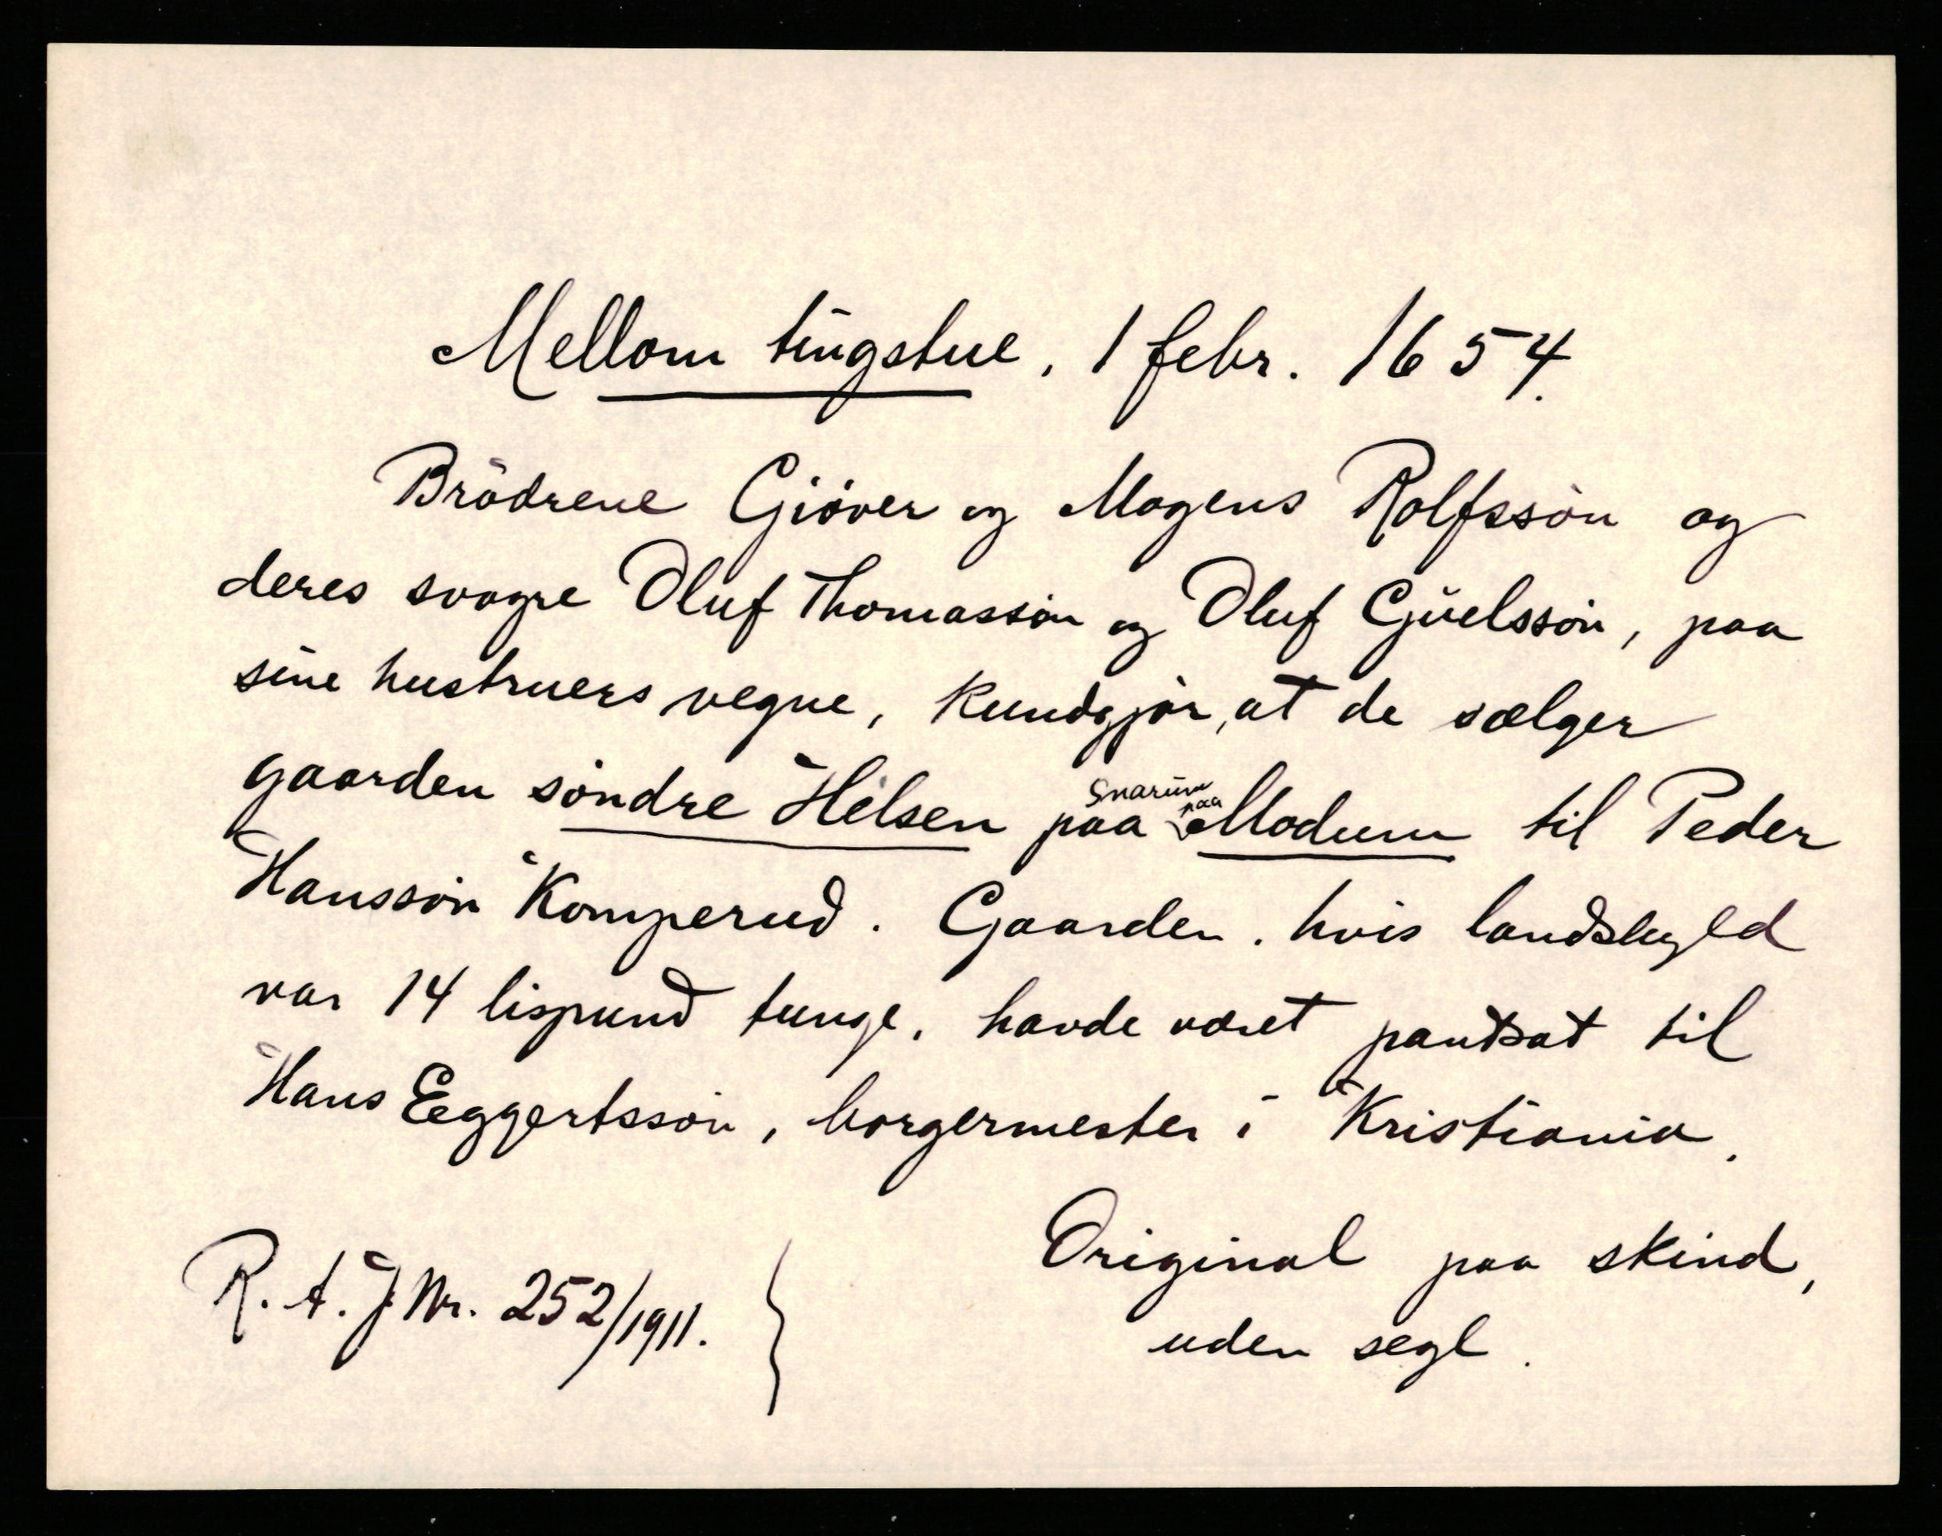 Mellom tingstue, 1 febr. 1654.
Brödrene Giöver og Mogens Rolfssön og
deres svogre Oluf Thomassön og Oluf Gůelssön, paa
sine hustruers vegne, kundgjör, at de sælger
gaarden söndre Hilsen paa Snarum paa Modum til Peder
Hanssön Komperud. Gaarden, hvis landskyld
var 14 lispund tunge, havde været pantsat til
Hans Eggertssön, borgermester i Kristiania.
Original paa skind,
uden segl.
R. A. J. Nr. 252/1911.